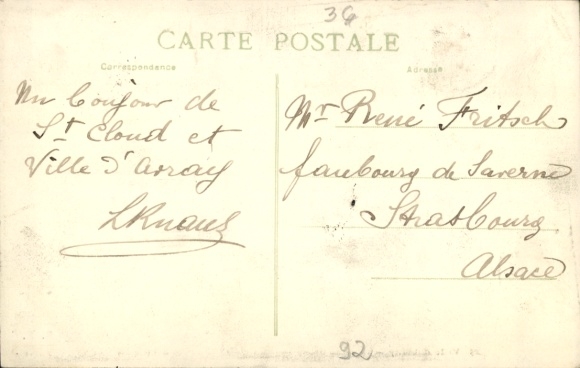 36
CARTE POSTALE
Correspondance
Adresse
Un bonjour de
St Cloud et
Ville d'Avray
Mr René Fritsch
faubourg de Saverne
Strasbourg
Alsace
92